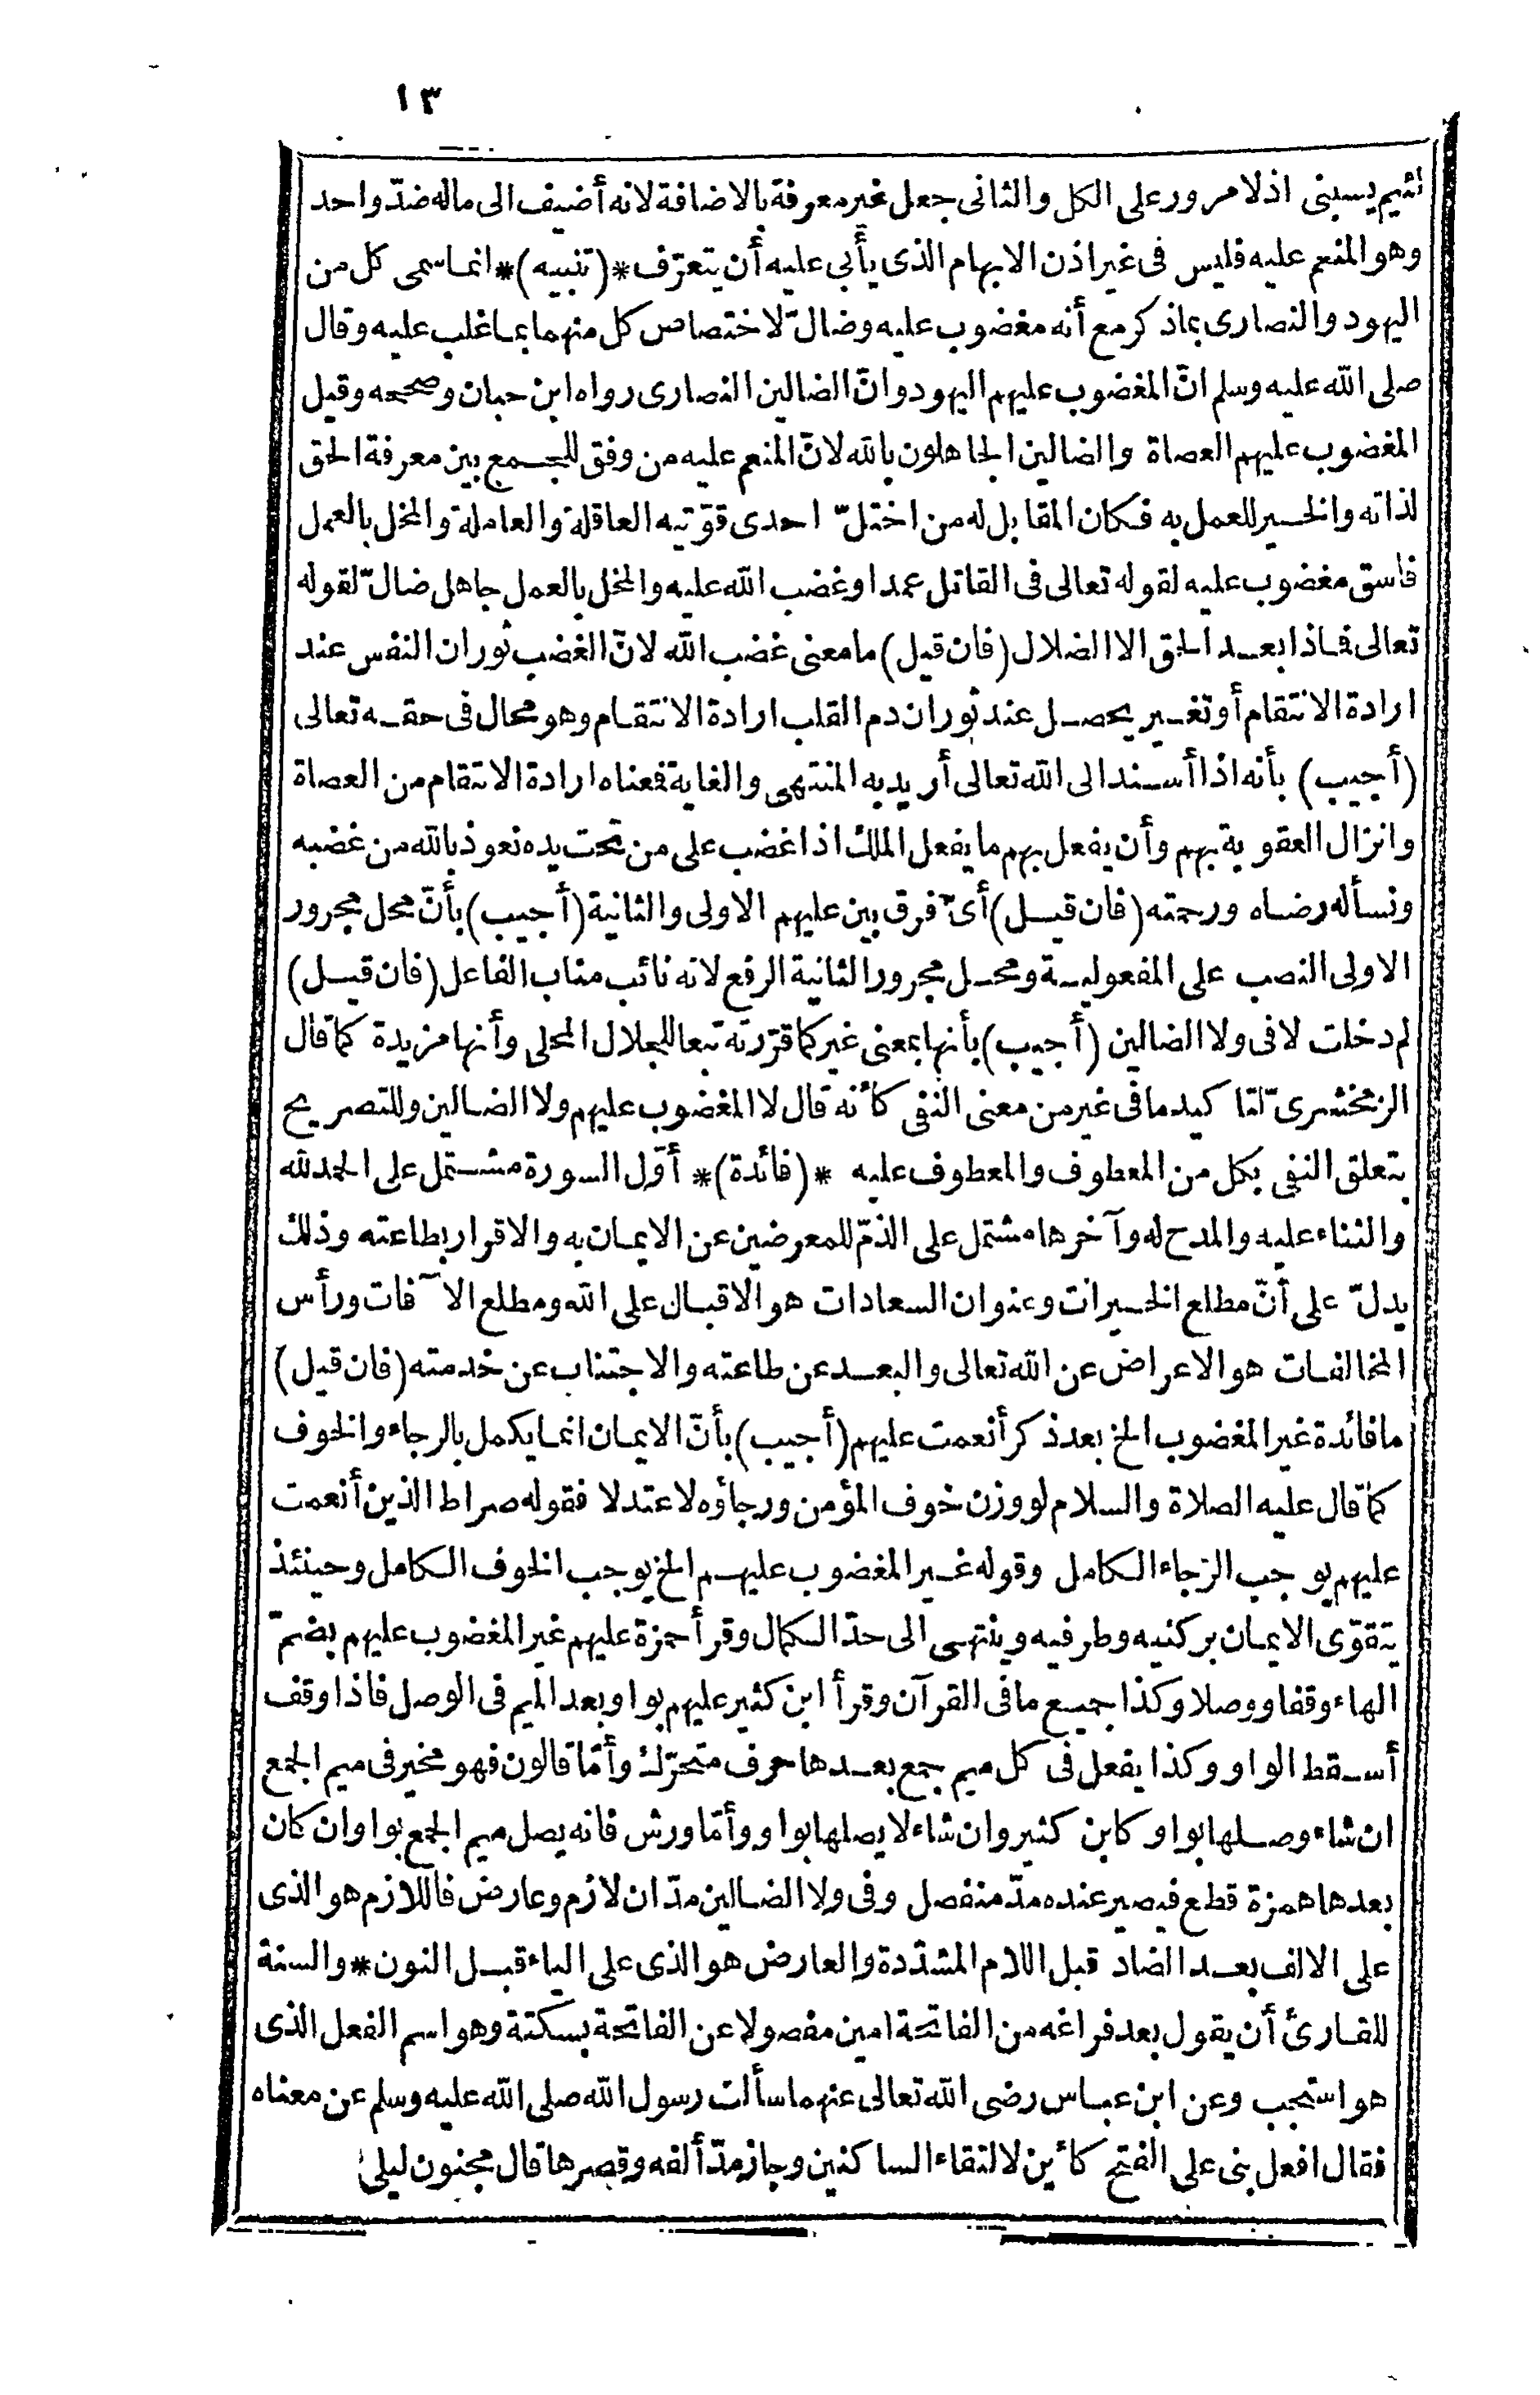 ١٣
لئيم يسبنى اذ لا مرور على الكل والثانى جعل غير معرفة بالاضافة لانه أضيف الى ماله ضدّ واحد
وهو المنعم عليه فليس فى غير اذن الابهام الذى يأبى عليه أن يتعرّف *(تنبيه)* انما سمى كل من
اليهود والنصارى بماذكر مع أنه مغضوب عليه وضالّ لاختصاص كل منهما بما غلب عليه وقال
صلى الله عليه وسلم انّ المغضوب عليهم اليهود وانّ الضالين النصارى رواه ابن حبان وصححه وقيل
المغضوب عليهم العصاة والضالين الجاهلون بالله لانّ المنعم عليه من وفق للجمع بين معرفة الحق
لذاته والخير للعمل به فكان المقابل له من اختلّ احدى قوّتيه العاقلة والعاملة والمخل بالعمل
فاسق مغضوب عليه لقوله تعالى فى القاتل عمدا وغضب الله عليه والمخل بالعمل جاهل ضالّ لقوله
تعالى فماذا بعد الحق الا الضلال (فان قيل) ما معنى غضب الله لانّ الغضب ثوران النفس عند
ارادة الانتقام أو تغير يحصل عند ثوران دم القلب ارادة الانتقام وهو محال فى حقه تعالى
(أجيب) بأنه اذا أسند الى الله تعالى أريد به المنتهى والغاية فمعناه ارادة الانتقام من العصاة
وانزال العقوبة بهم وأن يفعل بهم ما يفعل الملك اذا غضب على من تحت يده نعوذ بالله من غضبه
ونسأله رضاه ورحمته (فان قيل) أىّ فرق بين عليهم الاولى والثانية (أجيب) بأنّ محل مجرور
الاولى النصب على المفعولية ومحل مجرور الثانية الرفع لانه نائب مناب الفاعل (فان قيل)
لم دخلت لا فى ولا الضالين (أجيب) بأنها بمعنى غير كما قرّرته تبعا للجلال المحلى وأنها مزيدة كما قال
الزمخشرىّ لتأكيد ما فى غير من معنى النفى كأنه قال لا المغضوب عليهم ولا الضالين وللتصريح
بتعلق النفى بكل من المعطوف والمعطوف عليه *(فائدة)* أوّل السورة مشتمل على الحمد لله
والثناء عليه والمدح له وآخرها مشتمل على الذمّ للمعرضين عن الايمان به والاقرار بطاعته وذلك
يدلّ على أنّ مطلع الخيرات وعنوان السعادات هو الاقبال على الله ومطلع الآفات ورأس
المخالفات هو الاعراض عن الله تعالى والبعد عن طاعته والاجتناب عن خدمته (فان قيل)
ما فائدة غير المغضوب الخ بعد ذكر أنعمت عليهم (أجيب) بأنّ الايمان انما يكمل بالرجاء والخوف
كما قال عليه الصلاة والسلام لو وزن خوف المؤمن ورجاؤه لاعتدلا فقوله صراط الذين أنعمت
عليهم يوجب الرجاء الكامل وقوله غير المغضوب عليهم الخ يوجب الخوف الكامل وحينئذ
يتقوّى الايمان بركنيه وطرفيه وينتهى الى حدّ الكمال وقرأ حمزة عليهم غير المغضوب عليهم بضمّ
الهاء وقفا ووصلا وكذا جميع ما فى القرآن وقرأ ابن كثير عليهم بواو بعد الميم فى الوصل فاذا وقف
أسقط الواو وكذا يفعل فى كل ميم جمع بعدها حرف متحرّك وأمّا قالون فهو مخير فى ميم الجمع
ان شاء وصلها بواو كابن كثير وان شاء لا يصلها بواو وأمّا ورش فانه يصل ميم الجمع بواو ان كان
بعدها همزة قطع فيصير عنده مدّ منفصل وفى ولا الضالين مدّان لازم وعارض فاللازم هو الذى
على الالف بعد الضاد قبل اللام المشدّدة والعارض هو الذى على الياء قبل النون * والسنة
للقارئ أن يقول بعد فراغه من الفاتحة امين مفصولا عن الفاتحة بسكتة وهو اسم الفعل الذى
هو استجب وعن ابن عباس رضى الله تعالى عنهما سألت رسول الله صلى الله عليه وسلم عن معناه
فقال افعل بنى على الفتح كأين لالتقاء الساكنين وجاز مدّ ألفه وقصرها قال مجنون ليلى